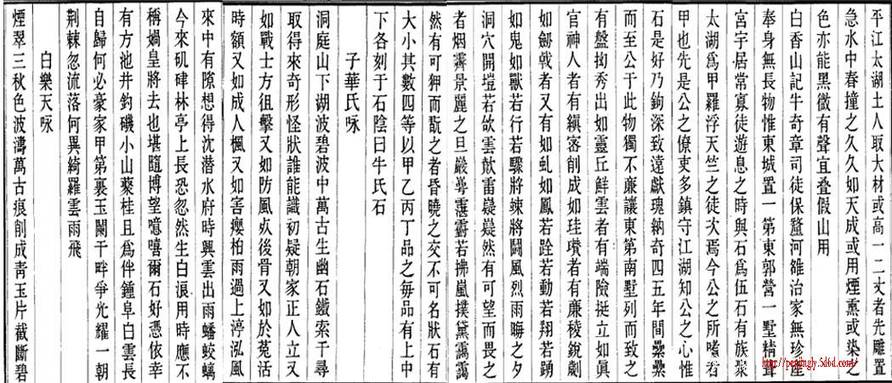 平江太湖土人取大材或高一二丈者先雕置
急水中舂撞之久久如天成或用煙熏或染之
色亦能黑微有聲宜叠假山用
白香山記牛奇章司徒保釐河雒治家無珍產
奉身無長物惟東城置一第東郭營一墅精葺
宮宇居常寡徒遊息之時與石為伍石有族聚
太湖為甲羅浮天竺之徒次焉今公之所嗜者
甲也先是公之僚吏多鎮守江湖知公之心惟
石是好乃鉤深致遠獻瑰納奇四五年間纍纍
而至公于此物獨不廉讓東第南墅列而致之
有盤拗秀出如靈丘鮮雲者有端險挺立如真
官神人者有縝密削成如珪瓚者有廉稜銳劌
如劍戟者又有如虬如鳳若跧若動若翔若踴
如鬼如獸若行若驟將竦將鬬風烈雨晦之夕
洞穴開皚若欱雲歕雷嶷嶷然有可望而畏之
者烟霽景麗之旦巖崿霮䨴若拂嵐撲黛靄靄
然有可狎而翫之者昏曉之交不可名狀石有
大小其數四等以甲乙丙丁品之每品有上中
下各刻于石陰曰牛氏石
子華氏咏
洞庭山下湖波碧波中萬古生幽石鐵索千尋
取得來奇形怪狀誰能識初疑朝家正人立又
如戰士方狙擊又如防風㱔後骨又如於菟活
時額又如成人楓又如害癭柏雨過上渟泓風
來中有隙想得沈潛水府時興雲出雨蟠蛟螭
今來矶硉林亭上長恐忽然生白浪用時應不
稱媧皇將去也堪隨博望噫嘻爾石好憑依幸
有方池并釣磯小山叢桂且為伴鍾阜白雲長
自歸何必豪家甲第裏玉闌干畔爭光耀一朝
荆棘忽流落何異綺羅雲雨飛
白樂天咏
煙翠三秋色波濤萬古痕削成青玉片截斷碧